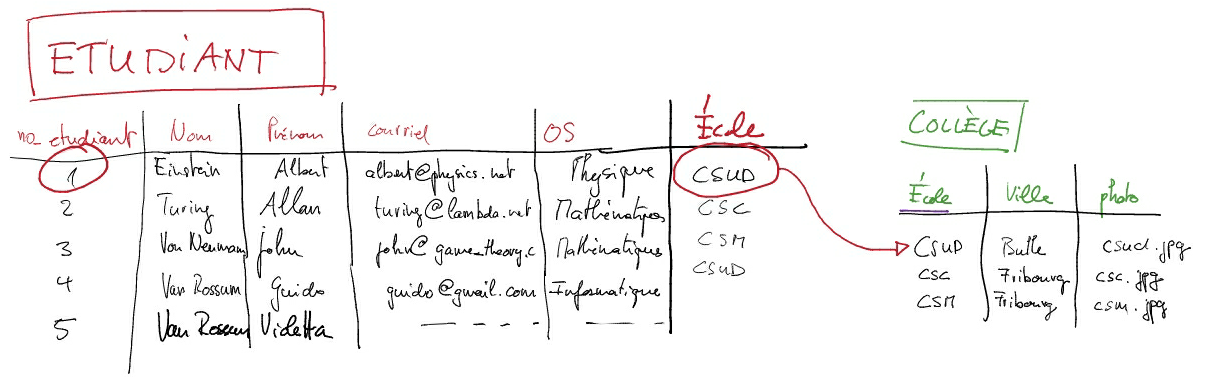 ETUDiANT
no_etudiant Nom Prénom courriel OS École
1 Einstein Albert albert@physics.net Physique CSUD
2 Turing Allan turing@lambda.net Mathématiques CSC
3 Von Neumann john john@game_theory.c Mathématique CSM
4 Van Rossum Guido guido@gmail.com Informatique CSUD
5 Van Rossum Videtta
COLLÈGE
École Ville photo
CSUD Bulle csud.jpg
CSC Fribourg csc.jpg
CSM Fribourg csm.jpg